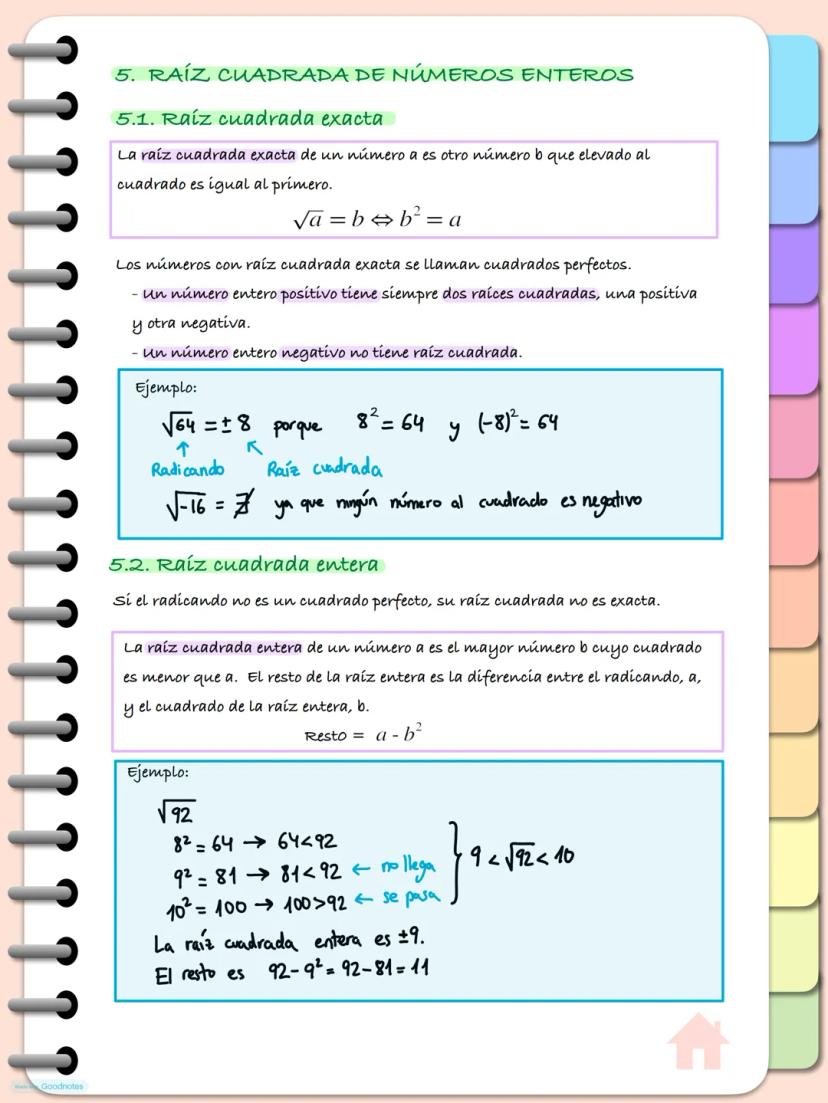 5. RAÍZ CUADRADA DE NÚMEROS ENTEROS
5.1. Raíz cuadrada exacta
La raíz cuadrada exacta de un número a es otro número b que elevado al
cuadrado es igual al primero.
√a = b ⇔ b² = a
Los números con raíz cuadrada exacta se llaman cuadrados perfectos.
- Un número entero positivo tiene siempre dos raíces cuadradas, una positiva
y otra negativa.
- Un número entero negativo no tiene raíz cuadrada.
Ejemplo:
√64 = ± 8 porque 8² = 64 y (-8)² = 64
↑ ↖
Radicando Raíz cuadrada
√-16 = ∄ ya que ningún número al cuadrado es negativo
5.2. Raíz cuadrada entera
Si el radicando no es un cuadrado perfecto, su raíz cuadrada no es exacta.
La raíz cuadrada entera de un número a es el mayor número b cuyo cuadrado
es menor que a. El resto de la raíz entera es la diferencia entre el radicando, a,
y el cuadrado de la raíz entera, b.
Resto = a - b²
Ejemplo:
√92
8² = 64 → 64<92
9² = 81 → 81<92 ← no llega
10² = 100 → 100>92 ← se pasa
} 9 < √92 < 10
La raíz cuadrada entera es ±9.
El resto es 92-9² = 92-81 = 11
Goodnotes